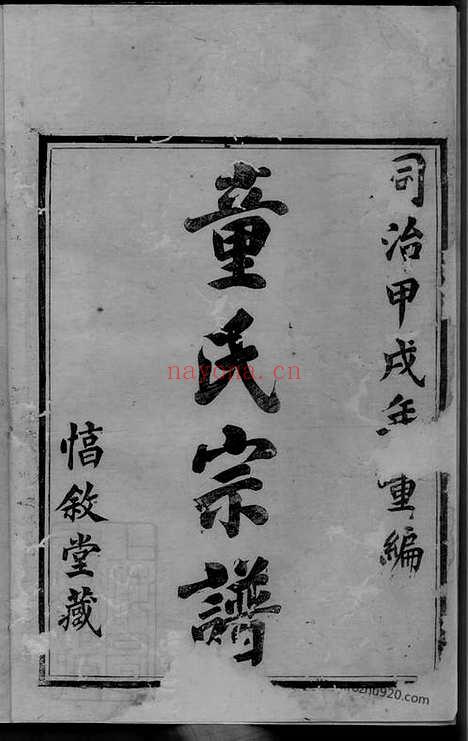 同治甲戌年重編
童氏宗譜
惇敘堂藏
nayona.cn